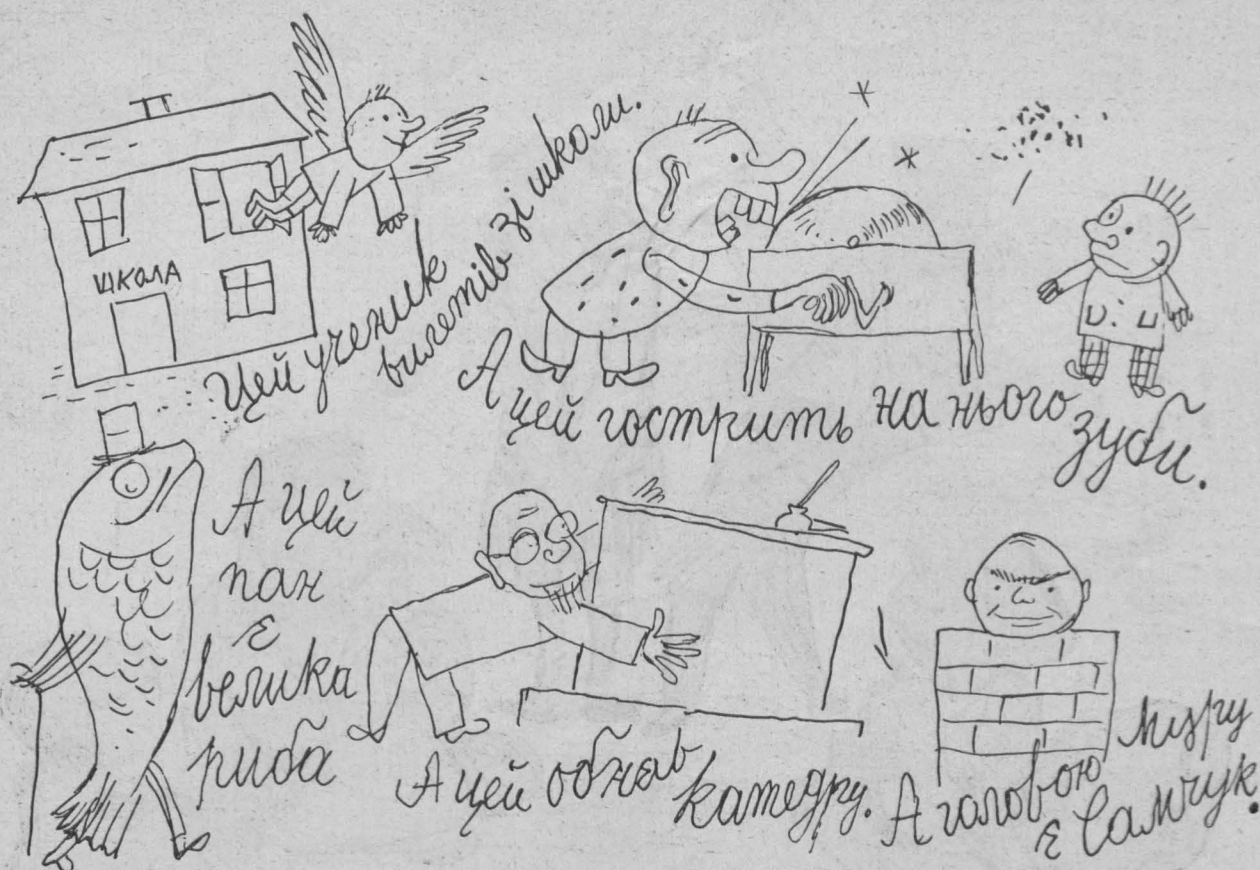 ШКОЛА
Цей ученик
вилетів зі школи.
А цей гострить на нього зуби.
А цей
пан
є
велика
риба
А цей обняв катедру.
А головою Муру
є Самчук.